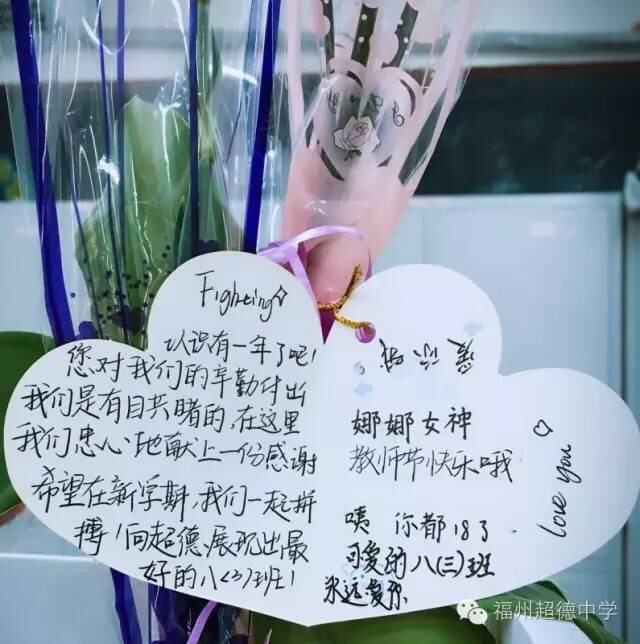 Fighting
认识有一年了吧！
您对我们的辛勤付出
我们是有目共睹的，在这里
我们忠心地献上一份感谢
希望在新学期，我们一起拼
搏！向超德展现出最
好的八<3>班！
爱你哦
娜娜女神
教师节快乐哦
咦 你都18了
可爱的八(三)班
永远爱你
love you
福州超德中学